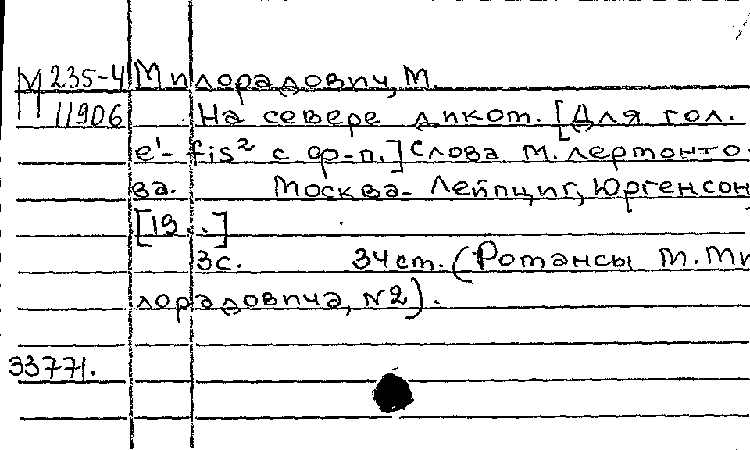 М 235-4 Милорадович, М.
11906 На севере диком. [Для гол.
e¹- fis² с ф-п.] Слова М. Лермонто-
ва. Москва- Лейпциг, Юргенсон
[19..]
3с. 34 ст. (Романсы М. Ми
лорадовича, N2).
33771.